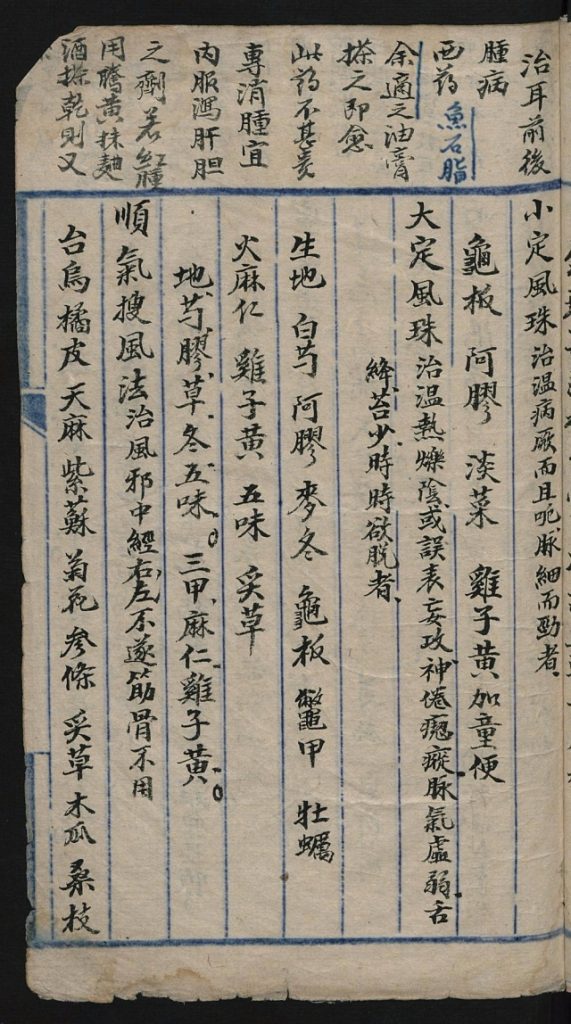 治耳前後
腫病
西药魚石脂
余適之油膏
搽之即愈
此药不甚貴
專消腫宜
内服瀉肝胆
之劑若紅腫
用騰黄抹麵
酒搽乾則又
小定風珠治温病厥而且呃脉細而勁者
龜板 阿膠 淡菜 雞子黄加童便
大定風珠治温熱爍陰或誤表妄攻神倦瘛瘲脉氣虚弱舌
絳苔少時時欲脱者
生地 白芍 阿膠 麥冬 龜板 鱉甲 牡蠣
火麻仁 雞子黄 五味 炙草
地芍膠草冬五味。三甲麻仁雞子黄。
順氣搜風法治風邪中經右左不遂筋骨不用
台烏橘皮天麻紫蘇菊花參條炙草木瓜桑枝